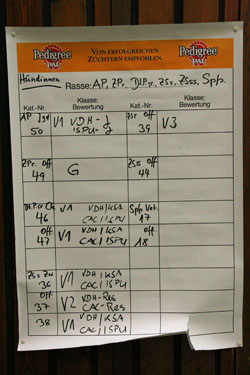 Pedigree PAL VON ERFOLGREICHEN ZÜCHTERN EMPFOHLEN. Pedigree PAL
Hündinnen
Rasse: AP, ZPr, ZSs, ZSss, Spp.
Kat.-Nr. Klasse: Bewertung Kat.-Nr. Klasse: Bewertung
AP 50 V1 VDH- ISPU- ZSs Off 39 V3
ZPr. Off 49 G ZSs Off 44
46 V1 VDH/KSA CAC/ISPU Spp Vet. 17
Off 47 V1 VDH/KSA CAC/ISPU Off 18
ZSs 36 V1 VDH/KSA CAC/ISPU
Off 37 V2 VDH-Res CAC-Res
38 V1 VDH/KSA CAC/ISPU